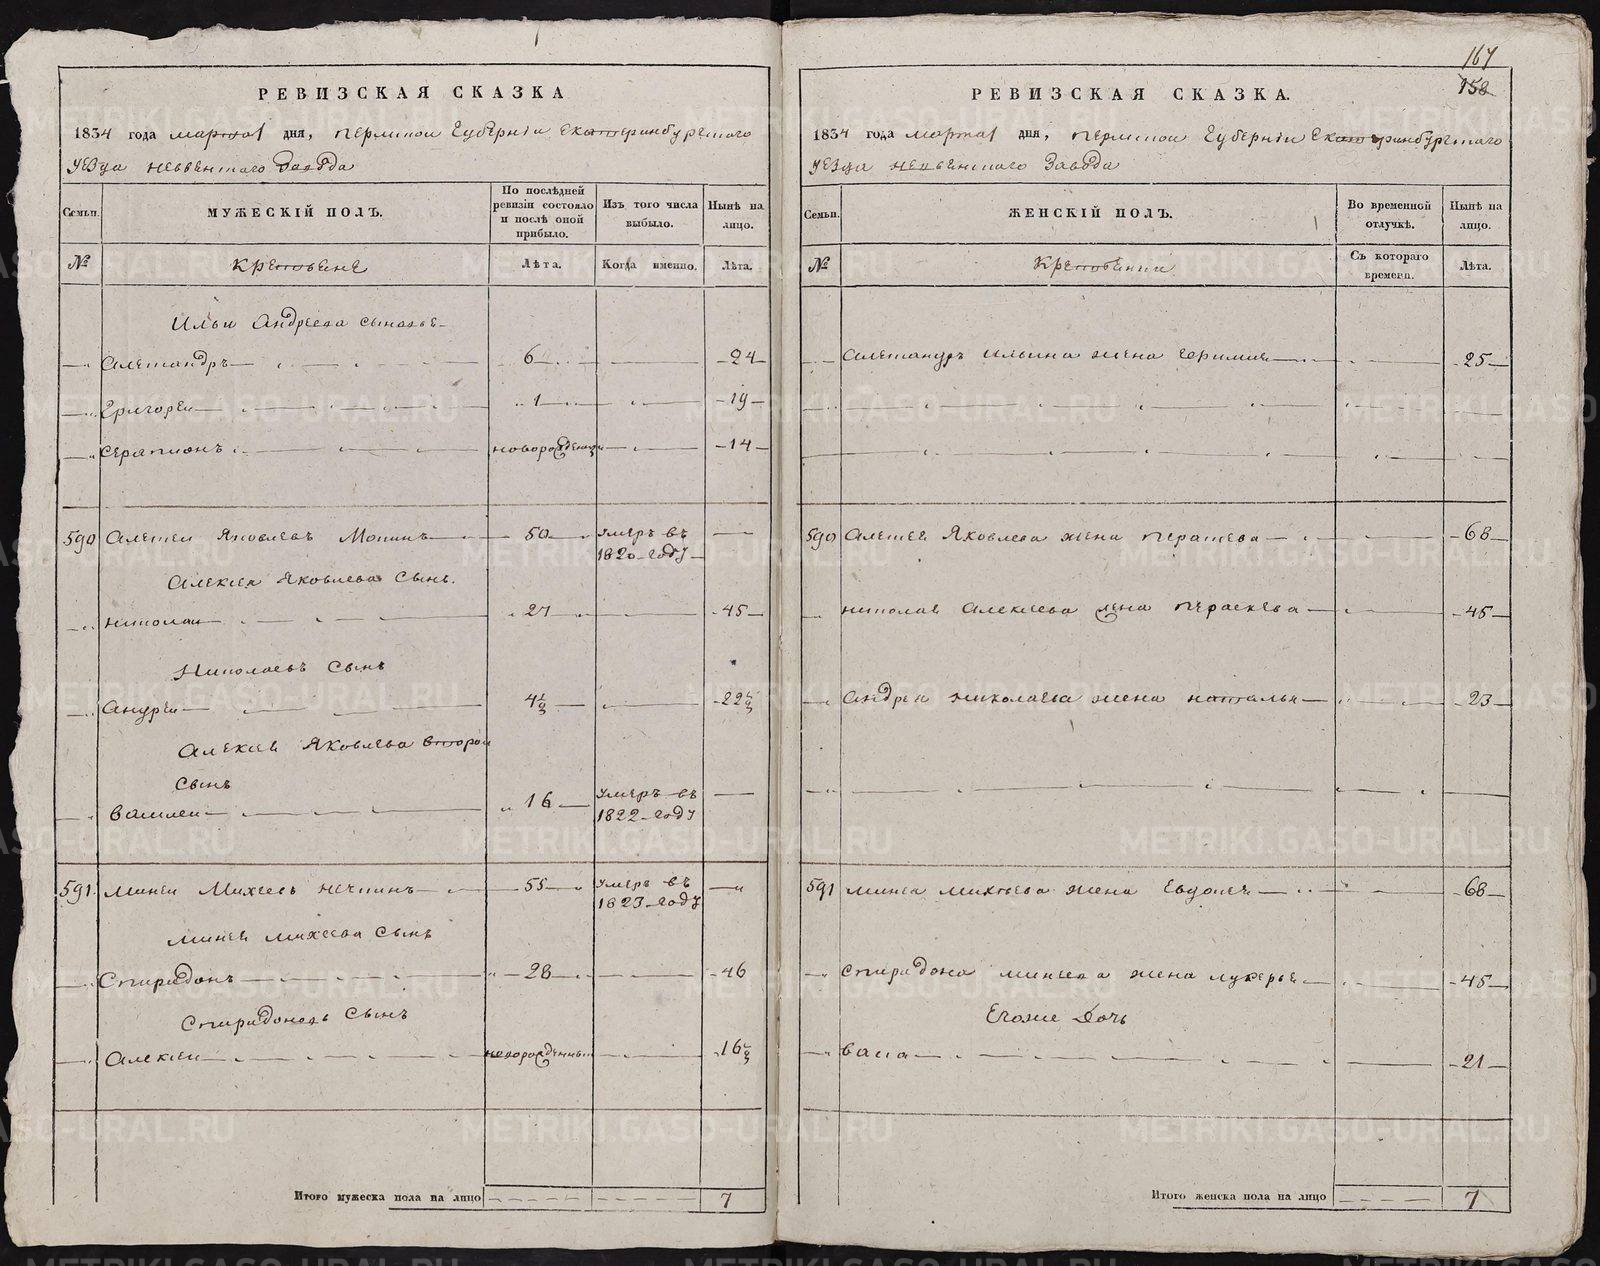 РЕВИЗСКАЯ СКАЗКА
1834 года марта 1 дня, Пермской Губерніи Екатеринбургскаго
уезда невьенскаго Завода
Семьи.
МУЖЕСКІЙ ПОЛЪ.
По послѣдней ревизіи состояло и послѣ оной прибыло.
Изъ того числа выбыло.
Нынѣ на лицо.
№
Лѣта.
Когда именно.
Лѣта.
Ильи Андреева сыновье
Александръ 6 24
Григореи 1 19
Серапионъ новорожденныи 14
590 Алексеи Яковлевъ 50 умеръ въ 1820 году
Алексея Яковлева сынъ.
николаи 27 45
Николаевъ сынъ
Андреи 4½ 22½
Алексея Яковлева второи
сынъ
Василеи 16 умеръ въ 1822 году
591. Минеи Михеевъ 55 умеръ въ 1823 году
Минея михеева сынъ
Спиридонъ 28 46
Спиридоновъ сынъ
Алексеи новорожденныи 16½
Итого мужеска пола на лицо 7
167
158
РЕВИЗСКАЯ СКАЗКА.
1834 года марта 1 дня, Пермской Губерніи Екатеринбургскаго
уезда невьенскаго Завода
Семьи.
ЖЕНСКІЙ ПОЛЪ.
Во временной отлучкѣ.
Нынѣ на лицо.
№
Съ котораго времени.
Лѣта.
Александръ ильина жена 25
590 Алексея Яковлева жена 68
николая Алексеева жена Пераскева 45
Андрея николаева жена наталья 23
591 минея михеева жена Евдокея 68
Спиридона минеева жена лукерье 45
Егоже Дочь
васа 21
Итого женска пола на лицо 7
METRIKI.GASO-URAL.RU